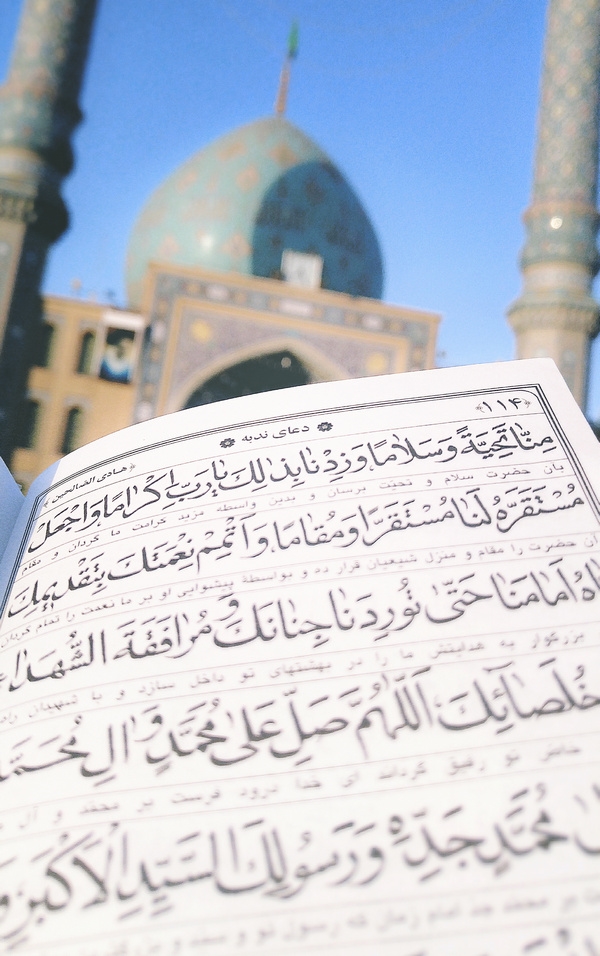 ﴿۱۱۴﴾
دعای ندبه
﴿هـادی الصالحین﴾
مِنَّا تَحِيَّةً وَسَلَامًا وَزِدْنَا بِذٰلِكَ يَارَبِّ اِكْرَامًا وَاجْعَلْ
بان حضرت سلام و تحیت برسان و بدین واسطه مزید کرامت ما گردان و مقام
مُسْتَقَرَّهُ لَنَا مُسْتَقَرًّا وَمُقَامًا وَاَتْمِمْ نِعْمَتَكَ بِتَقْدِيمِكَ
آن حضرت را مقام و منزل شیعیان قرار ده و بواسطهٔ پیشوایی او بر ما نعمت را تمام گردان
اَمَامَنَا حَتّٰى تُورِدَنَا جِنَانَكَ وَمُرَافَقَةَ الشُّهَدَاءِ
بزرگوار به هدایتش ما را در بهشتهای تو داخل سازد و با شهیدان راه
خُلَصَائِكَ اَللّٰهُمَّ صَلِّ عَلٰى مُحَمَّدٍ وَاٰلِ مُحَمَّدٍ
خاص تو رفیق گرداند ای خدا درود فرست بر محمد و آل
مُحَمَّدٍ جَدِّهِ وَرَسُولِكَ السَّيِّدِ الْاَكْبَرِ
بر محمد جد امام زمان که رسول تو و سید و